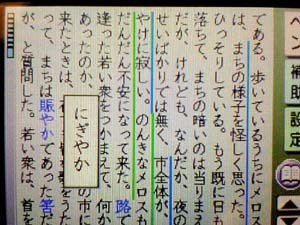 である。歩いているうちにメロス
は、まちの様子を怪しく思った。
ひっそりしている。もう既に日も
落ちて、まちの暗いのは当りまえ
だが、けれども、なんだか、夜の
せいばかりでは無く、市全体が、
やけに寂しい。のんきなメロスも
だんだん不安になって来た。路で
逢った若い衆をつかまえて、何か
あったのか、の市に
来たときは、をうた
って、まちは賑やかであった筈だ
が、と質問した。若い衆は、首を
にぎやか
ペン
補助
設定